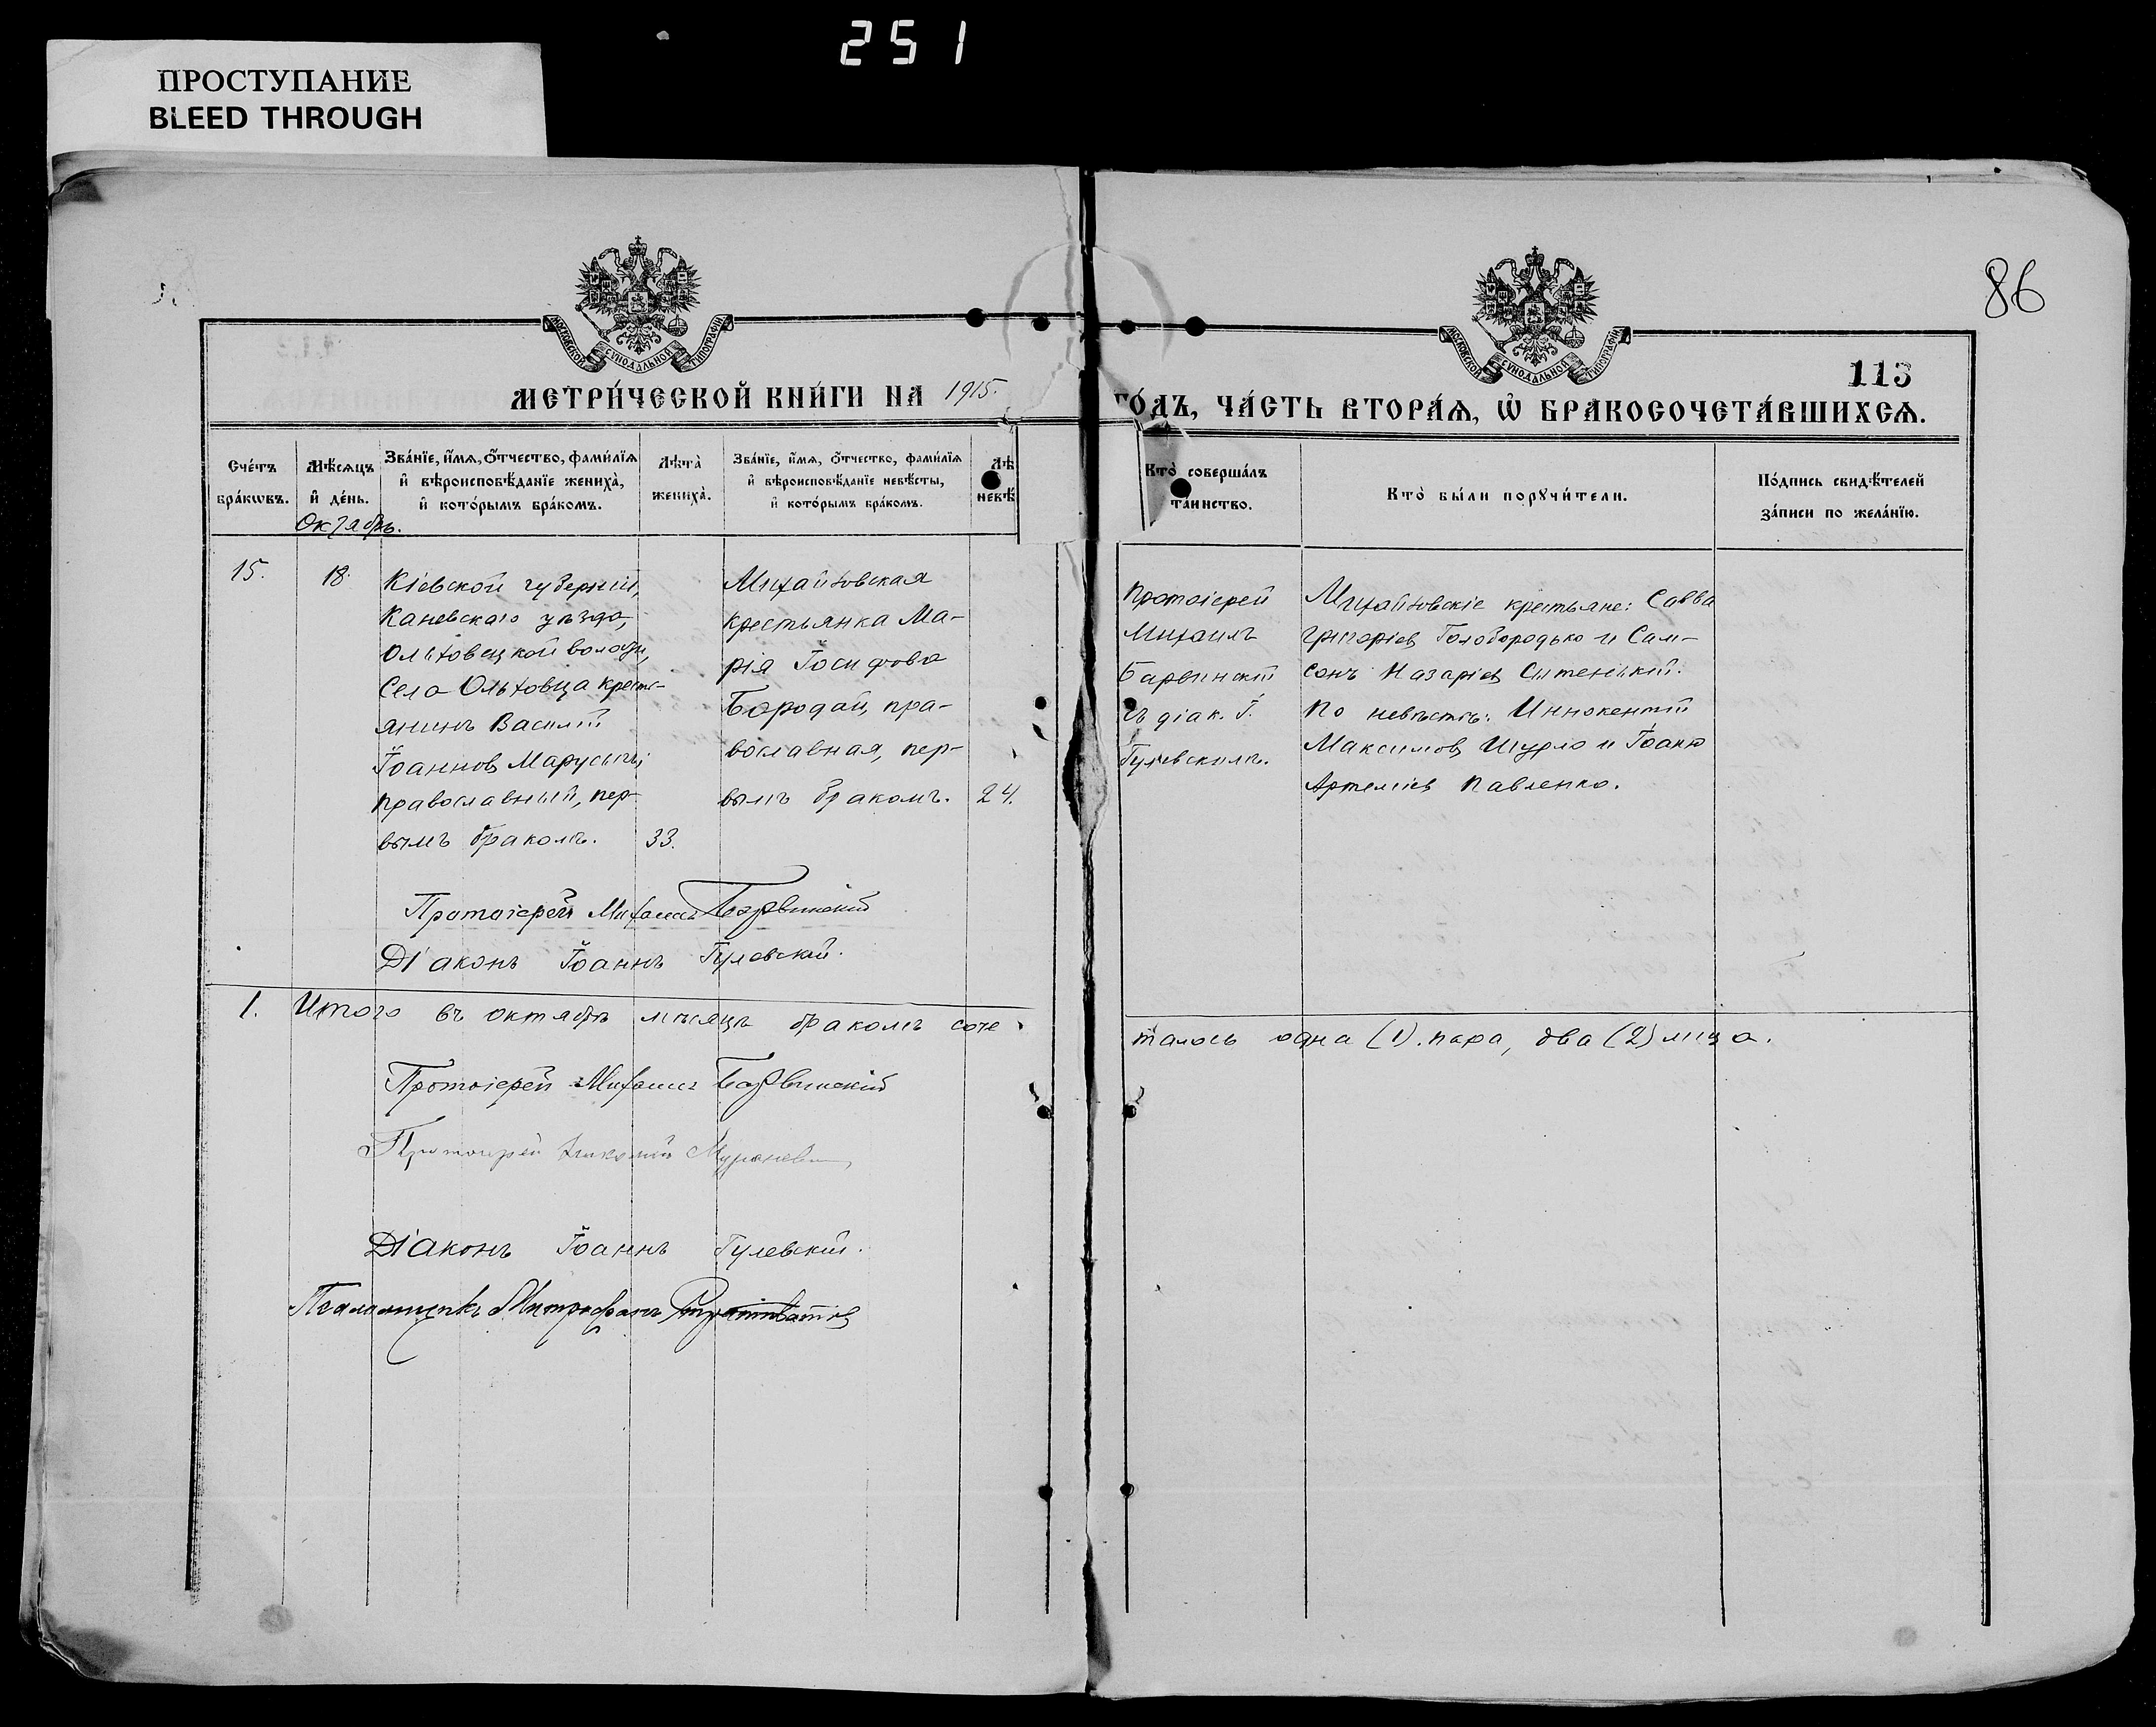 251
ПРОСТУПАНИЕ
BLEED THROUGH
86
МОСКОВСКОЙ СѴНОДАЛЬНОЙ ТИПОГРАФІИ
МОСКОВСКОЙ СѴНОДАЛЬНОЙ ТИПОГРАФІИ
113
МЕТРИ́ЧЕСКОЙ КНИ́ГИ НА 1915.
ГО́ДЪ, ЧА́СТЬ ВТОРА́Ѧ, Ѽ БРАКОСОЧЕТА́ВШИХСѦ.
Сче́тъ
бра́кѡвъ.
Мѣ́сѧцъ
и҆ де́нь.
Октябрь.
Зва́нїе, и҆́мѧ, ѻ҆́тчество, фами́лїѧ
и҆ вѣроисповѣ́данїе жениха̀,
и҆ кото́рымъ бра́комъ.
Лѣта̀
жениха̀.
Зва́нїе, и҆́мѧ, ѻ҆́тчество, фами́лїѧ
и҆ вѣроисповѣ́данїе невѣ́сты,
и҆ кото́рымъ бра́комъ.
Лѣ
невѣ́
Кто̀ соверша́лъ
та́инство.
Кто̀ бы́ли порꙋчи́тели.
По́дпись свидѣ́телей
за́писи по жела́нїю.
15.
18.
Кіевской губерніи,
Каневскаго уѣзда,
Ольховецкой волости,
села Ольховца кресть-
янинъ Василій
Іоанновъ
православный, пер-
вымъ бракомъ.
33.
Михайловская
крестьянка Ма-
рія Іосифова
Бородай, пра-
вославная, пер-
вымъ бракомъ.
24.
Протоіерей
Михаилъ
Барвинскій
съ діак. І.
Гулевскимъ.
Михайловскіе крестьяне: Савва
Григоріевъ Голобородько и Сам-
сонъ Назаріевъ
По невѣстѣ: Иннокентій
Максимовъ Шурло и Іоанн
Артеміевъ Павленко.
Протоіерей Михаилъ Барвинскій
Діаконъ Іоаннъ Гулевскій.
1. Итого въ октябрѣ мѣсяцѣ бракомъ соче-
талось одна (1). пара, два (2) лица.
Протоіерей Михаилъ Барвинскій
Протоіерей
Діаконъ Іоаннъ Гулевскій.
Псаломщикъ Митрофанъ